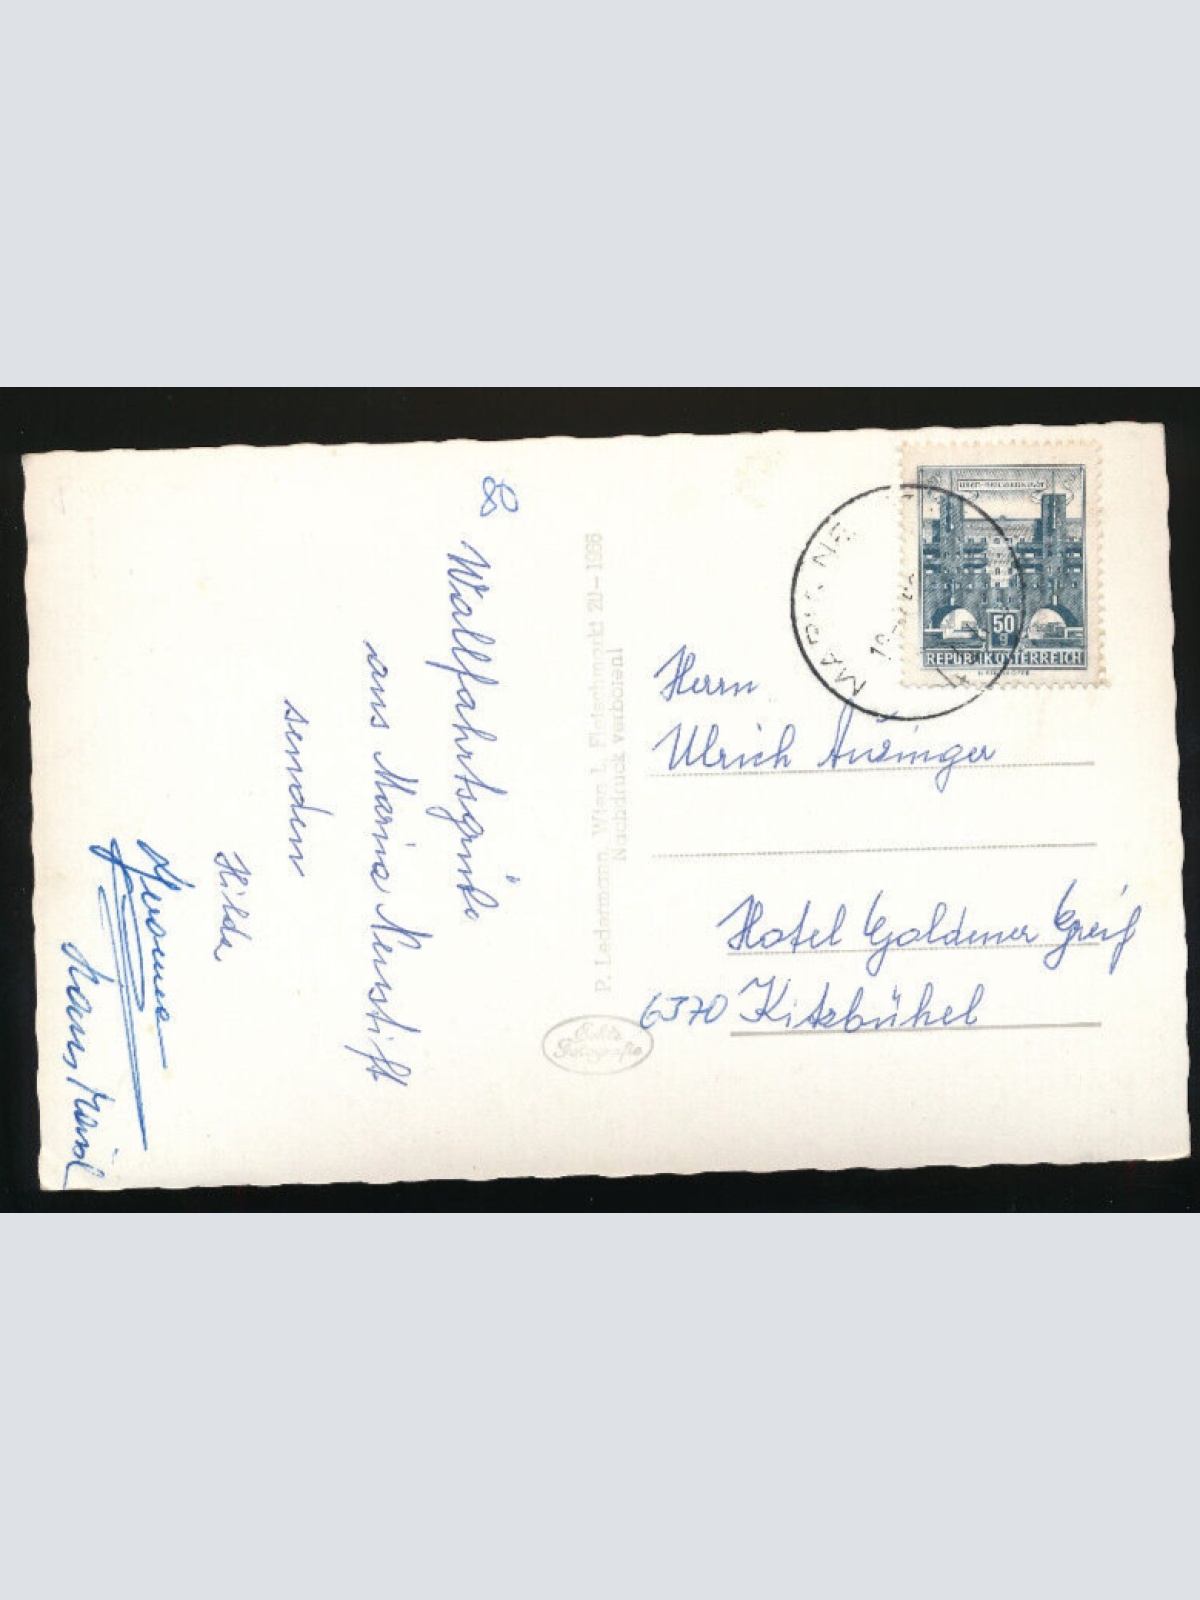 Wallfahrtsgrüße
aus Maria Neustift
senden
Hilda
Hans
P. Ledermann, Wien I, Fleischmarkt 20 – 1966
Nachdruck verboten!
Echte
Fotografie
50
g
REPUBLIK ÖSTERREICH
Herrn
Ulrich
Hotel Goldener Greif
6370 Kitzbühel